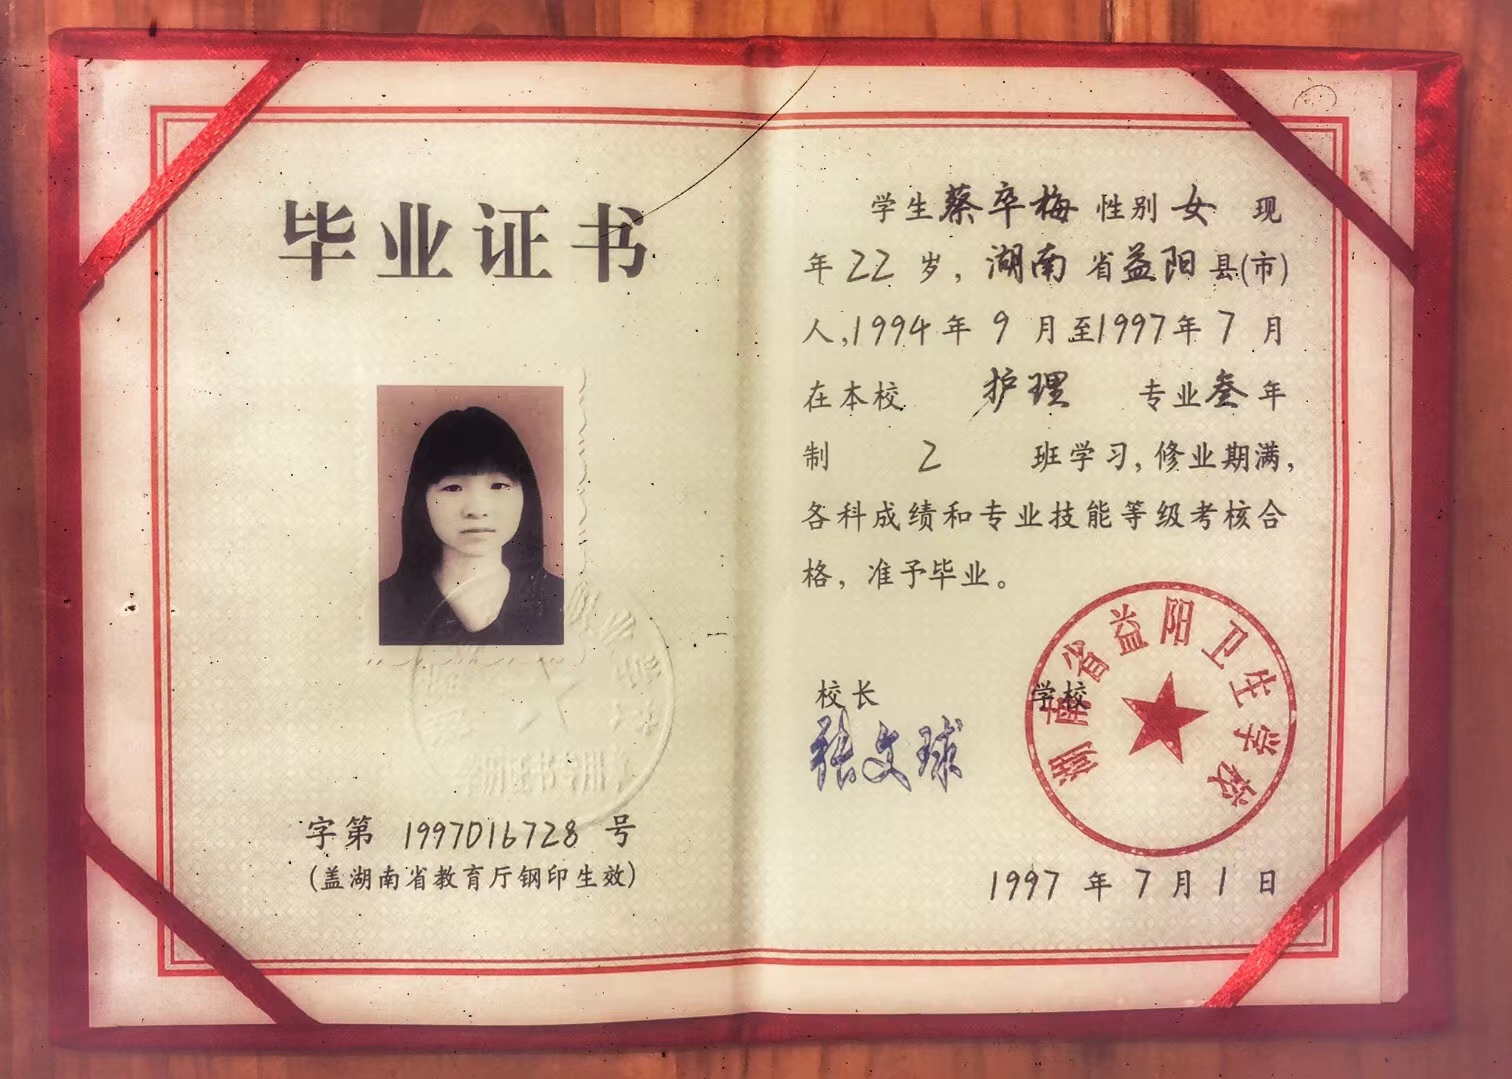 毕业证书
字第 1997016728 号
(盖湖南省教育厅钢印生效)
学生蔡卒梅 性别 女 现
年 22 岁，湖南 省益阳县(市)
人,1994 年 9 月至1997年 7 月
在本校 护理 专业叁年
制 2 班学习,修业期满,
各科成绩和专业技能等级考核合
格，准予毕业。
校长 学校
张文球
湖南省益阳卫生学校
1997 年 7 月 1 日